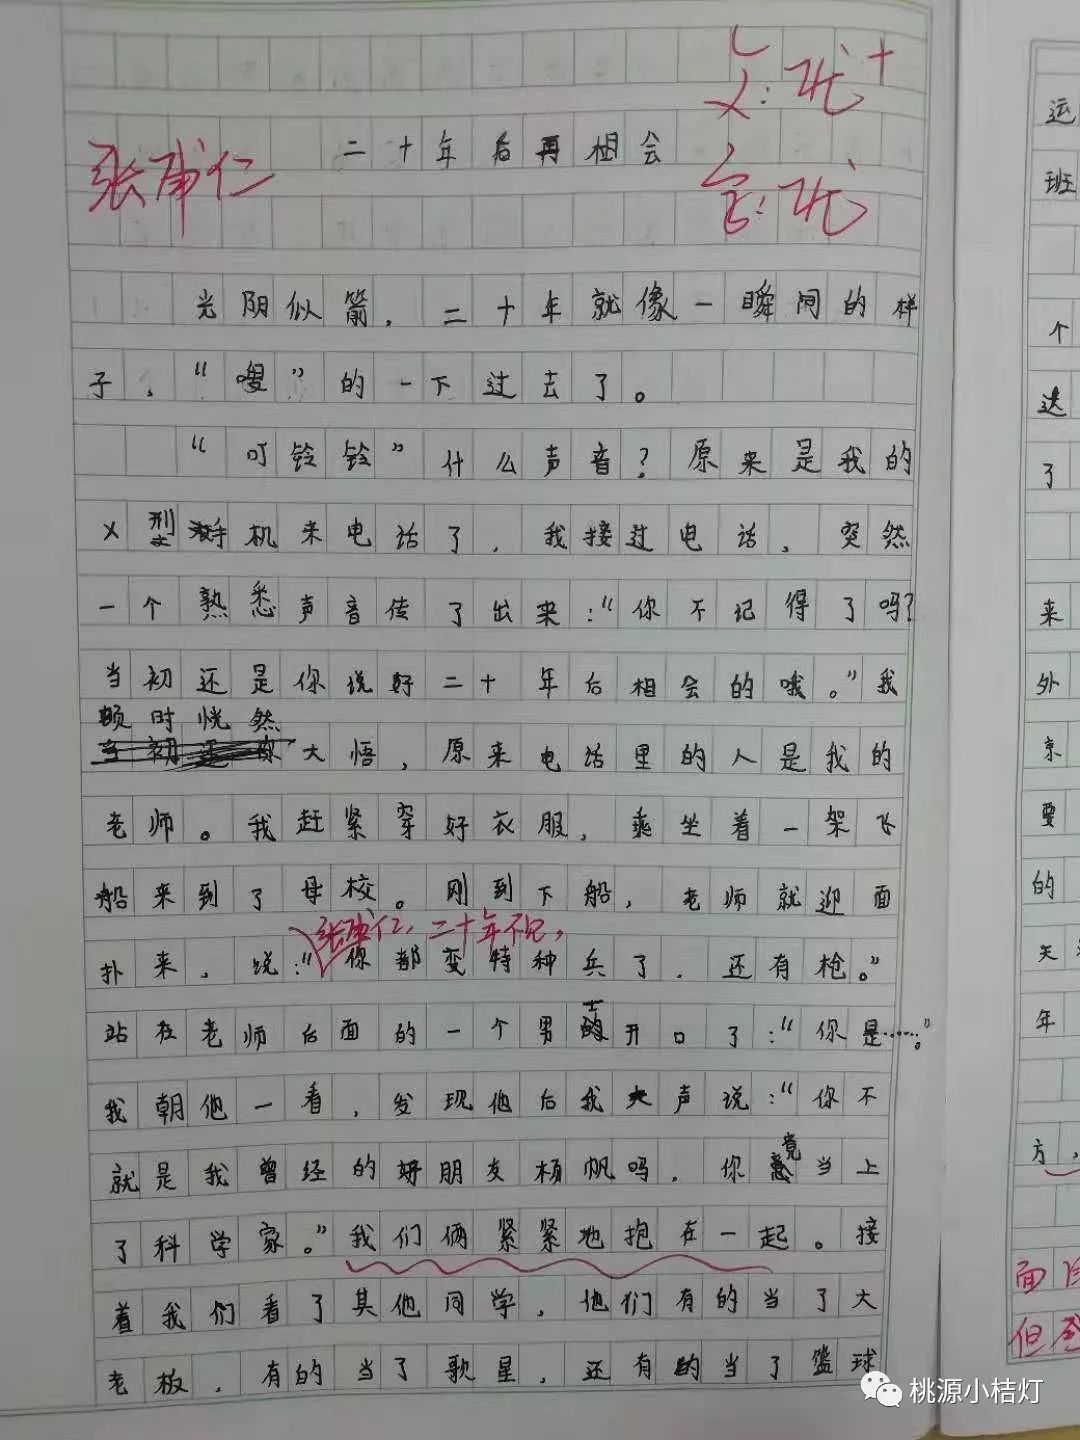 文：优+
二十年后再相会
张甫仁
字：优
光阴似箭，二十年就像一瞬间的样
子，“嗖”的一下过去了。
“叮铃铃”什么声音？原来是我的
X型手机来电话了，我接过电话，突然
一个熟悉声音传了出来：“你不记得了吗？
当初还是你说好二十年后相会的哦。”我
顿时恍然
大悟，原来电话里的人是我的
老师。我赶紧穿好衣服，乘坐着一架飞
船来到了母校。刚到下船，老师就迎面
张甫仁，二十年不见，
扑来，说：“你都变特种兵了，还有枪。”
站在老师后面的一个男士开口了：“你是……”
我朝他一看，发现他后我大声说：“你不
就是我曾经的好朋友杨帆吗，你竟当上
了科学家。”我们俩紧紧地抱在一起。接
着我们看了其他同学，他们有的当了大
老板，有的当了歌星，还有的当了篮球
运
班
个
送
了
来
外
京
要
的
天
年
方，
面
但
桃源小桔灯